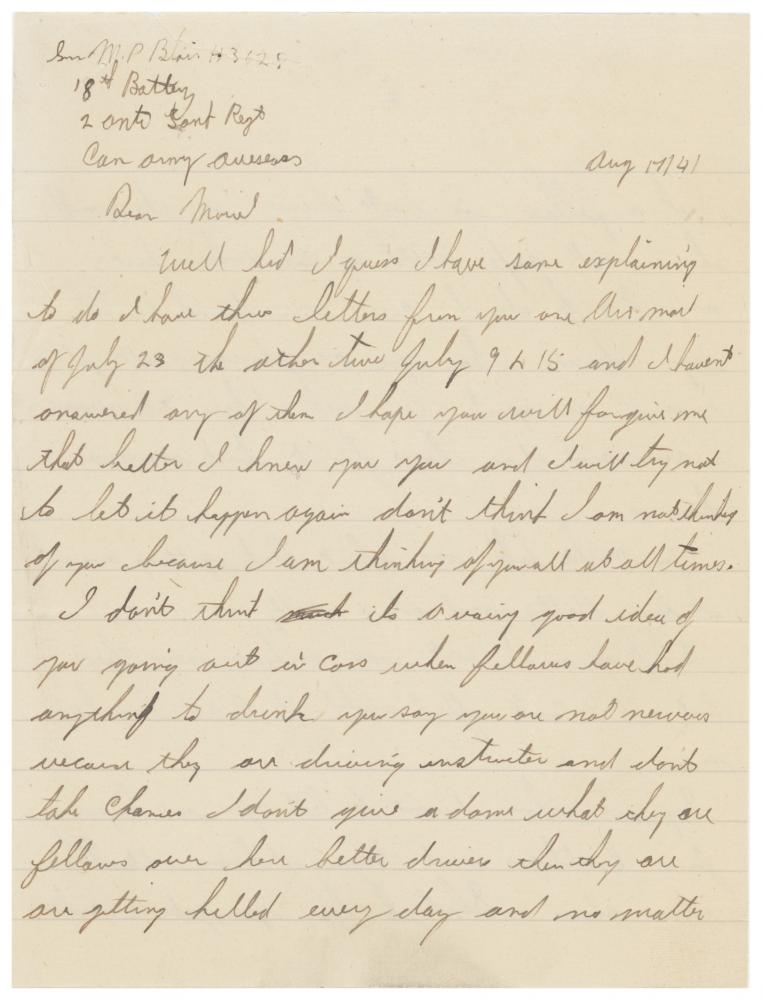 Gnr M.P Blair H3625
18th Battery
2 anti Tank Regt
Can army overseas
Aug 17/41
Dear Muriel
Well kid I guess I have some explaining
to do I have three letters from you one Air mail
of July 23 the other two July 9 & 15 and I havent
answered any of them I hope you will forgive me
that better I knew you you and I will try not
to let it happen again don't think I am not thinking
of you because I am thinking of you all at all times.
I don't think its a very good idea of
you going out in cars when fellows have had
anything to drink you say you are not nervous
because they are driving instructer and don't
take chances I don't give a dame what they are
fellows over here better drivers then they are
are getting killed every day and no matter